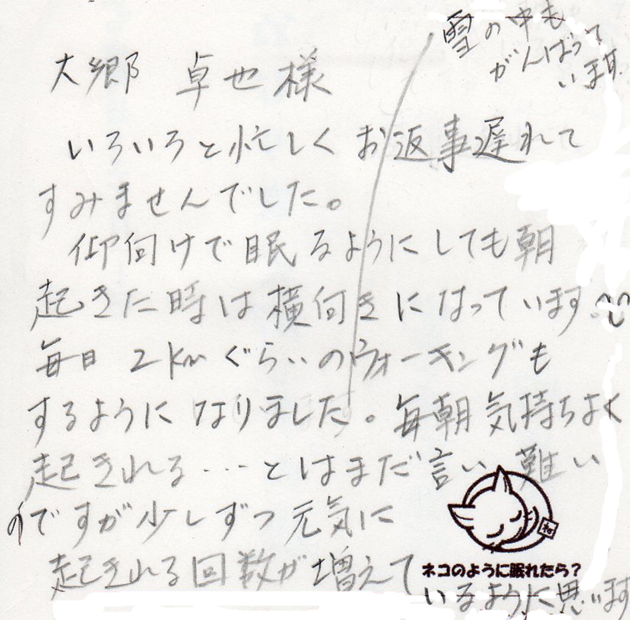 大郷 卓也様
いろいろと忙しくお返事遅れて
すみませんでした。
仰向けで眠るようにしても朝
起きた時は横向きになっています。
毎日 2kmぐらいのウォーキングも
するようになりました。毎朝気持ちよく
起きれる…とはまだ言い難い
のですが少しずつ元気に
起きれる回数が増えて
いるように思います
雪の中も
がんばって
います
ネコのように眠れたら?